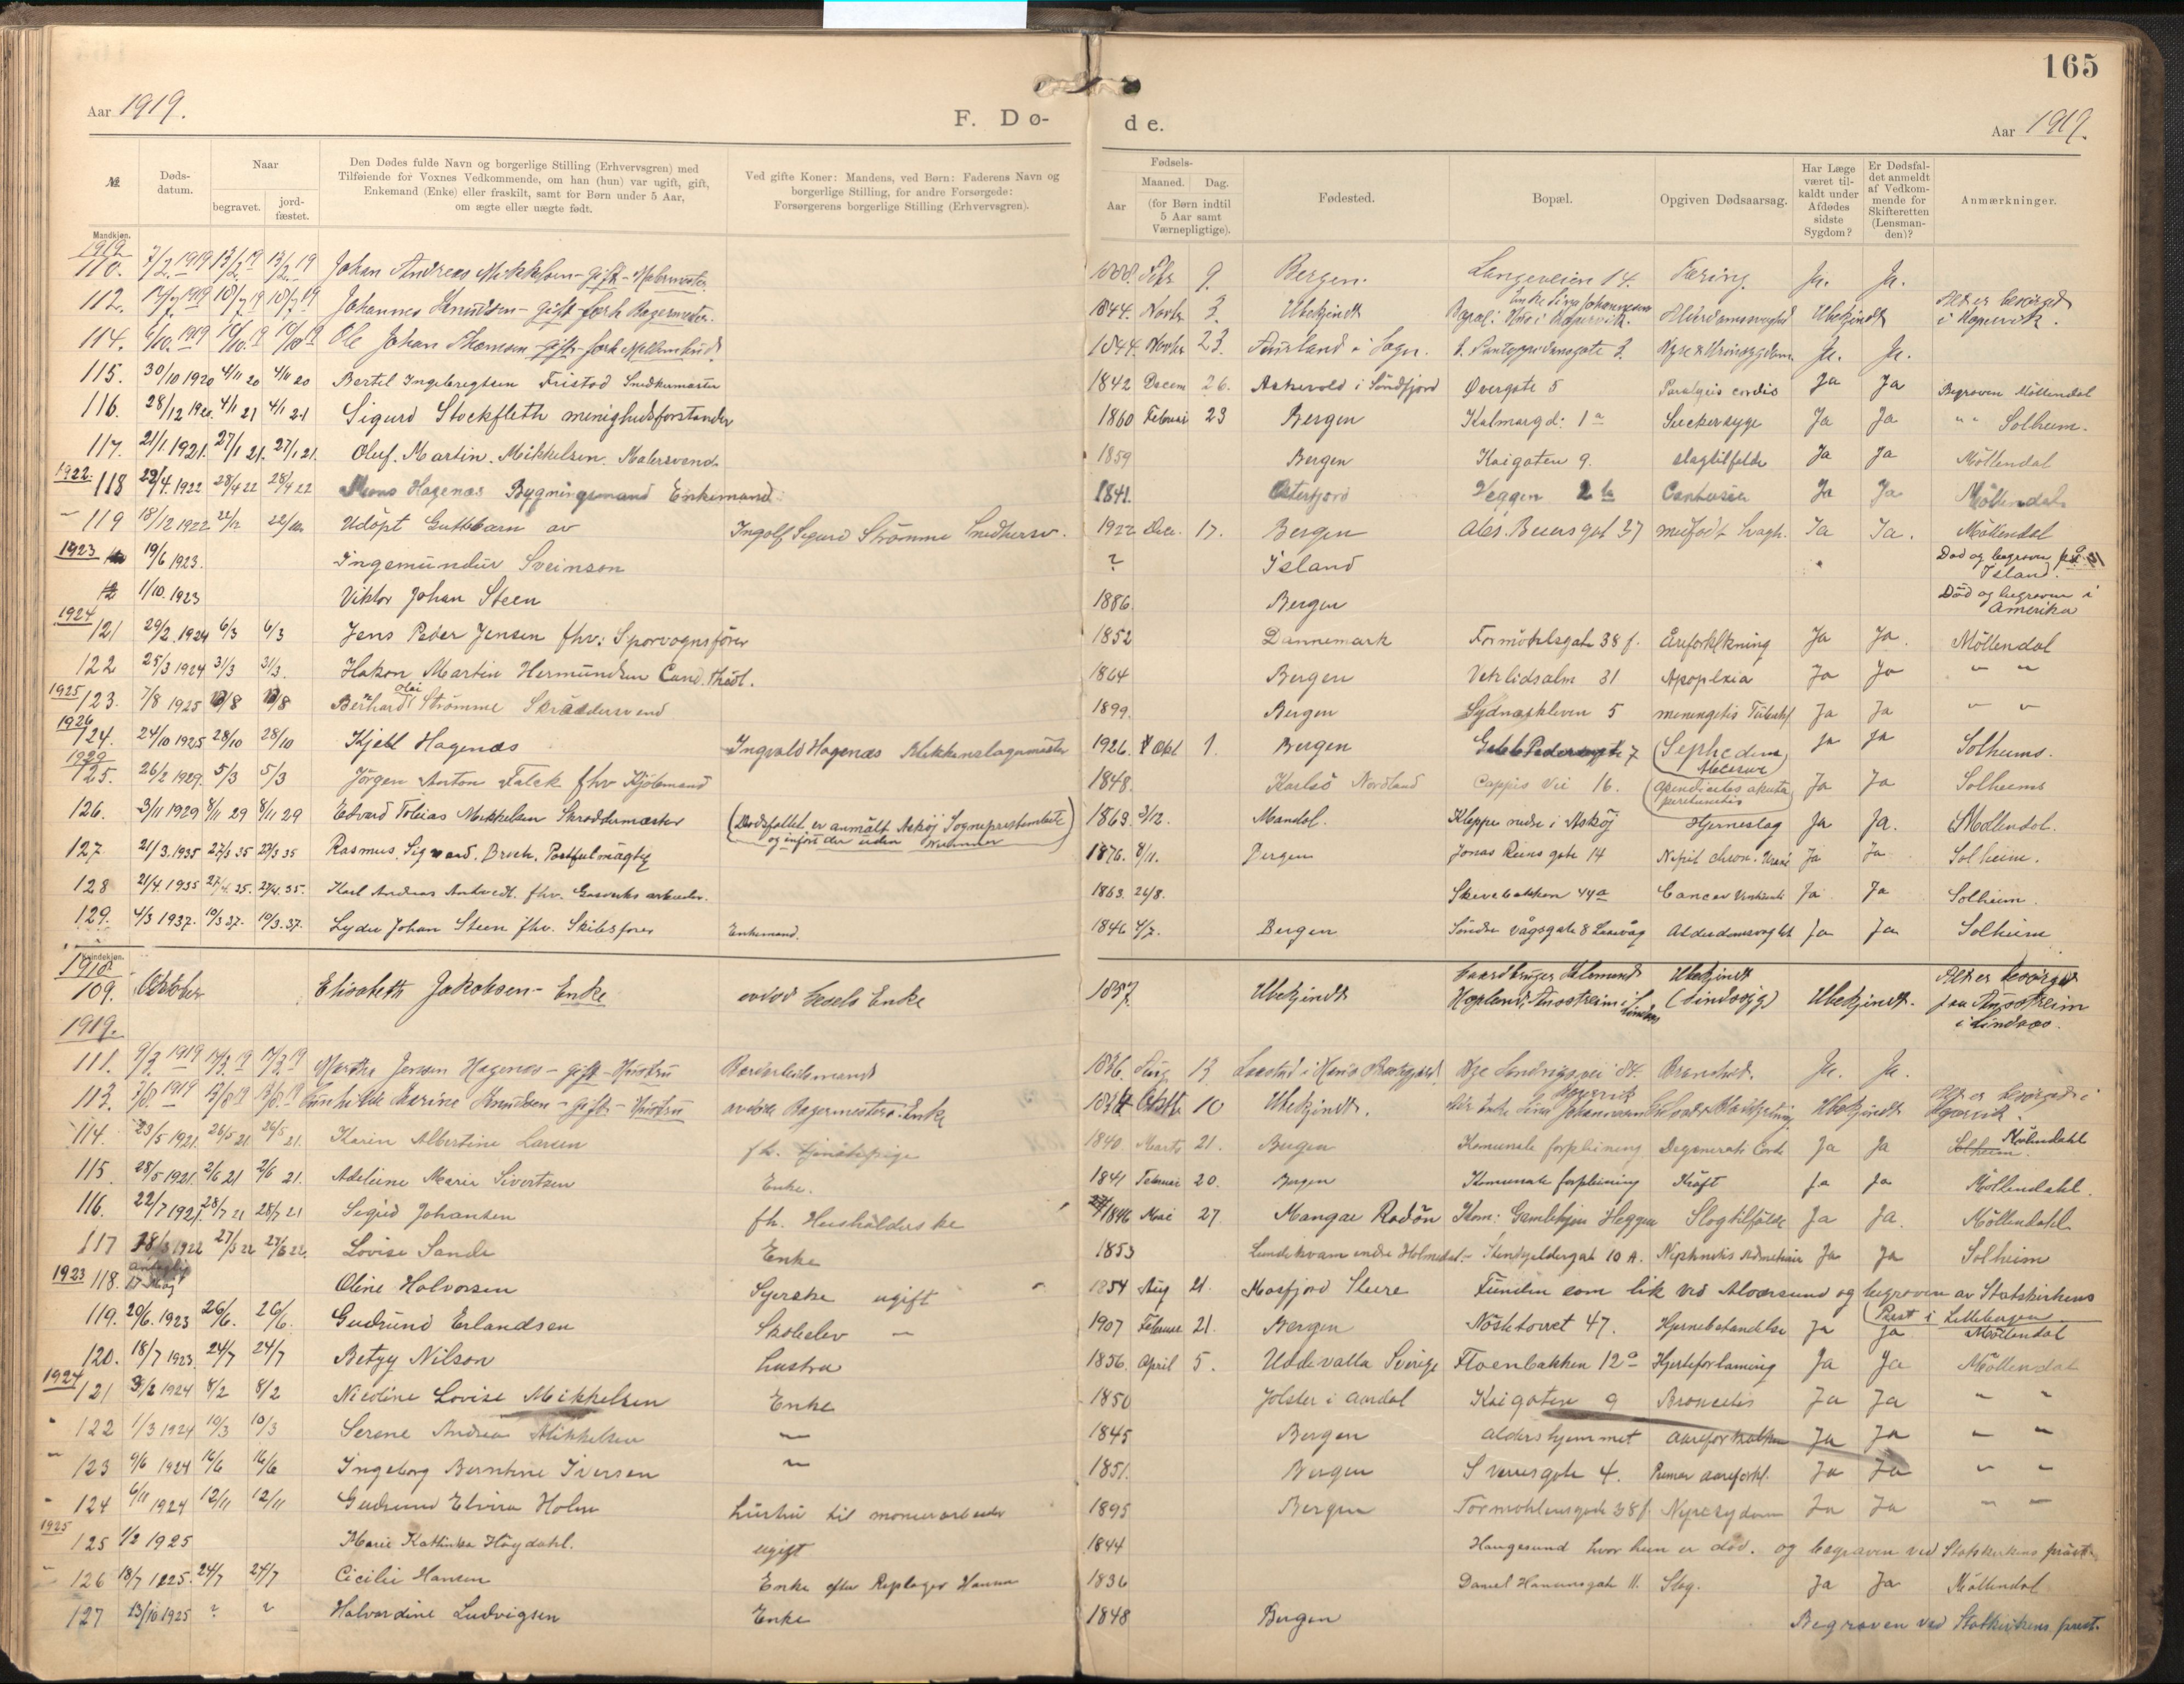 165
Aar 1919.
F. Dø-
de.
Aar 1919.
№
Døds-
datum.
Naar
begravet.
jord-
fæstet.
Den Dødes fulde Navn og borgerlige Stilling (Erhvervsgren) med
Tilføiende for Voxnes Vedkommende, om han (hun) var ugift, gift,
Enkemand (Enke) eller fraskilt, samt for Børn under 5 Aar,
om ægte eller uægte født.
Ved gifte Koner: Mandens, ved Børn: Faderens Navn og
borgerlige Stilling, for andre Forsørgede:
Forsørgerens borgerlige Stilling (Erhvervsgren).
Fødsels-
Aar
Maaned.
Dag.
(for Børn indtil
5 Aar samt
Værnepligtige).
Fødested.
Bopæl.
Opgiven Dødsaarsag.
Har Læge
været til-
kaldt under
Afdødes
sidste
Sygdom?
Er Dødsfal-
det anmeldt
af Vedkom-
mende for
Skifteretten
(Lensman-
den)?
Anmærkninger.
Mandkjøn.
1919
110. 7/2. 1919 13/2 19 13/2 19 Johan Andreas Mikkelsen - gift - Malermester. 1888. Febr 9. Bergen. Langeveien 14. Tæring. Ja. Ja.
112. 14/7 1919 18/7 19 18/7 19 Johannes Knudsen - gift - forh Bagermester. 1844. Novbr 3. Ubekjendt Alderdomssvaghed Ubekjendt Alt er besörget
i Kopervik.
114. 6/10. 1919 10/10 19 10/10 19 Ole Johan Thomsen - gift - forh 1844. Novbr 23. Aurland i Sogn. Ja. Ja.
115. 30/10 1920 4/11 20 4/11 20 Bertil Ingebregtsen Fristad Snedkermæster 1842 Decem 26. Askevold i Söndfjord Øvergate 5 Paralysis cordis Ja Ja Begraven Möllendal
116. 28/12 1920. 4/1 21 4/1 21 Sigurd Stockfleth menighedsforstander 1860 Februar 23 Bergen Kalmargd: 1a Suckersyge Ja Ja " " Solheim.
117. 21/1. 1921. 27/1 21. 27/1 21. Oluf. Martin. Mikkelsen. Malersvend. 1859 Bergen Kaigaten 9. slagtilfelde Ja Ja Möllendal
1922. 118 22/4. 1922 28/4 22 28/4 22 Mons Hagenæs Bygningsmand Enkemand. 1841. Osterfjord Heggen Ja Ja Möllendal
" 119 18/12 1922 22/12 22/12 Udöpt Guttebarn av Ingolf Sigurd Strømme Snedkersv. 1922 Dec. 17. Bergen 37 medfødt svagh. Ja Ja. Möllendal
1923 19/6 1923. Ingemundur Sveinson ? Island Død og begraven på
Island.
1/10. 1923 Viktor Johan Steen 1886. Bergen Död og begraven i
Amerika
1924
121 29/2. 1924 6/3 6/3 Jens Peder Jensen fhv: Sporvognsfører 1852 Dannemark 38 f. Åreforkalkning Ja Ja. Möllendal
122 25/3 1924 31/3 31/3. Hakon Martin Hermundsen Cand. Theol. 1864 Bergen Vetrlidsalm 31 Apoplexia Ja Ja " "
1925
123. 7/8 1925 10/8 10/8 Berhard Olai Strömme Skræddersvend 1899. Bergen Sydneskleven 5 meningitis Ja Ja " "
1926
124. 24/10 1925 28/10 28/10 Kjell Hagenæs Ingvald Hagenæs Blikkenslagermæster 1926. Okt 1. Bergen 7 Ja Ja Solheims.
1929
125. 26/2 1929. 5/3 5/3 Jörgen Anton Falck fhv 1848. Karlsö Nordland Cappes Vei 16. (Apendicites akuta Ja Ja Solheims
126. 3/11 1929 8/11 29 8/11 29 Edvard Tobias Mikkelsen Skreddermæster (Dødsfallet er anmält Asköy Sogneprestembete
og infört der uden Nummer) 1863 3/12. Mandal. Kleppe nedre i Asköy Hjerneslag Ja Ja. Möllendal.
127 21/3. 1935 27/3 35 27/3 35 Rasmus. Sigvard. Brech. Postfulmägtig 1876. 8/11. Bergen Jonas Reins gate 14 Ja Ja Solheim.
128 21/4. 1935 27/4. 35. 27/4. 35. Karl Andreas fhv. Gasverks arbeider. 1863. 26/8. Skivebakken 44a Cancer Ja Ja Solheim.
129. 4/3 1937. 10/3 37. 10/3. 37. Lyder Johan Steen fhv. Skibsfører Enkemand. 1846 4/7. Bergen Söndre Vågsgate 8 Laxevåg Alderdomssvaghet Ja Ja Solheim
Kvindekjøn.
1918
109. Oktober Elisabeth Jakobsen - Enke 1837. Ubekjendt Ubekjendt
(Lindaas) Ubekjendt. Alt er besörget
i Lindaas.
1919.
111. 9/3 1919 14/3 19 14/3 19 Martha Jensen Hagenæs - gift - Hustru 1836. Aug 13. Ja. Ja.
113. 7/8. 1919 12/8 19 12/8 19 Karine Knudsen - gift - Hustru Bagermesters Enke Oktb 10 Ubekjendt. Ubekjendt Alt er besörget i
114. 23/5 1921. 26/5 21. 26/5 21. Karin Albertine Larsen fh. tjenestepige 1840 Marts 21. Bergen Komunale forpleining Degenerati Cord. Ja Ja Solheim. Möllendahl
115. 28/5 1921. 2/6 21 2/6 21. Adeleine Marie Sivertsen Enke. 1841 Februar 20. Bergen Komunale forpleining Kräft Ja Ja Möllendahl.
116. 22/7 1921. 28/7 21 28/7 21 Sigrid Johansen fh. Husholderske 1846 Mai 27. Mangær Radöen Kom: Gamlehjem Heggen Slagtilfälde Ja Ja. Möllendahl
117 18/3 1922 27/3 22 27/3 22. Lovise Sande Enke 1853 10 A. Ja Ja Solheim
1923 118. antagelig
17 Maj Oline Halvorsen Syerske ugift 1854 Aug 21. Masfjord Funden som lik ved Alversund og begraven av Statskirkens
Prest i
119. 20/6. 1923 26/6. 26/6. Gudrund Erlandsen Skoleelev 1907 Februar 21. Bergen Nöstetorvet 47. Hjernebetændelse Ja Ja Möllendal
120. 18/7 1923. 24/7 24/7 Betzy Nilson hustru 1856. April 5. Uddevalla Sverige Floenbakken 12a Hjerteforlaming Ja Ja Möllendal
1924
121 3/2 1924 8/2 8/2 Nicoline Lovise Mikkelsen Enke 1850 Jolster i Kaigaten 9 Broncitis Ja Ja " "
" 122 1/3 1924 10/3 10/3 Serene Andrea Mikkelsen " 1845 Bergen Aldershjemmet Aareforkalkn Ja Ja " "
" 123 9/6 1924 16/6 16/6 Ingeborg Berntine Iversen " 1851. Bergen Sverresgate 4. aareforkl. Ja Ja " "
" 124 6/11 1924 12/11 12/11 Gudrund Elvira Holm hustru til 1895 Bergen Tormøhlensgate 38 f. Nyresygdom Ja Ja " "
1925
125 1/2 1925 Marie Kathinka Höydahl. ugift 1844 Haugesund hvor hun er død. og begraven ved Statskirkens präst.
" 126 18/7 1925. 24/7 24/7 Cicilie Hansen Enke efter Repslager Hansen 1836 Daniel Hansensgate 11. Slag. Ja Ja Möllendal
127 13/10 1925 ? ? Halvardine Ludvigsen Enke 1848 Bergen Begraven ved Statkirkens prest.